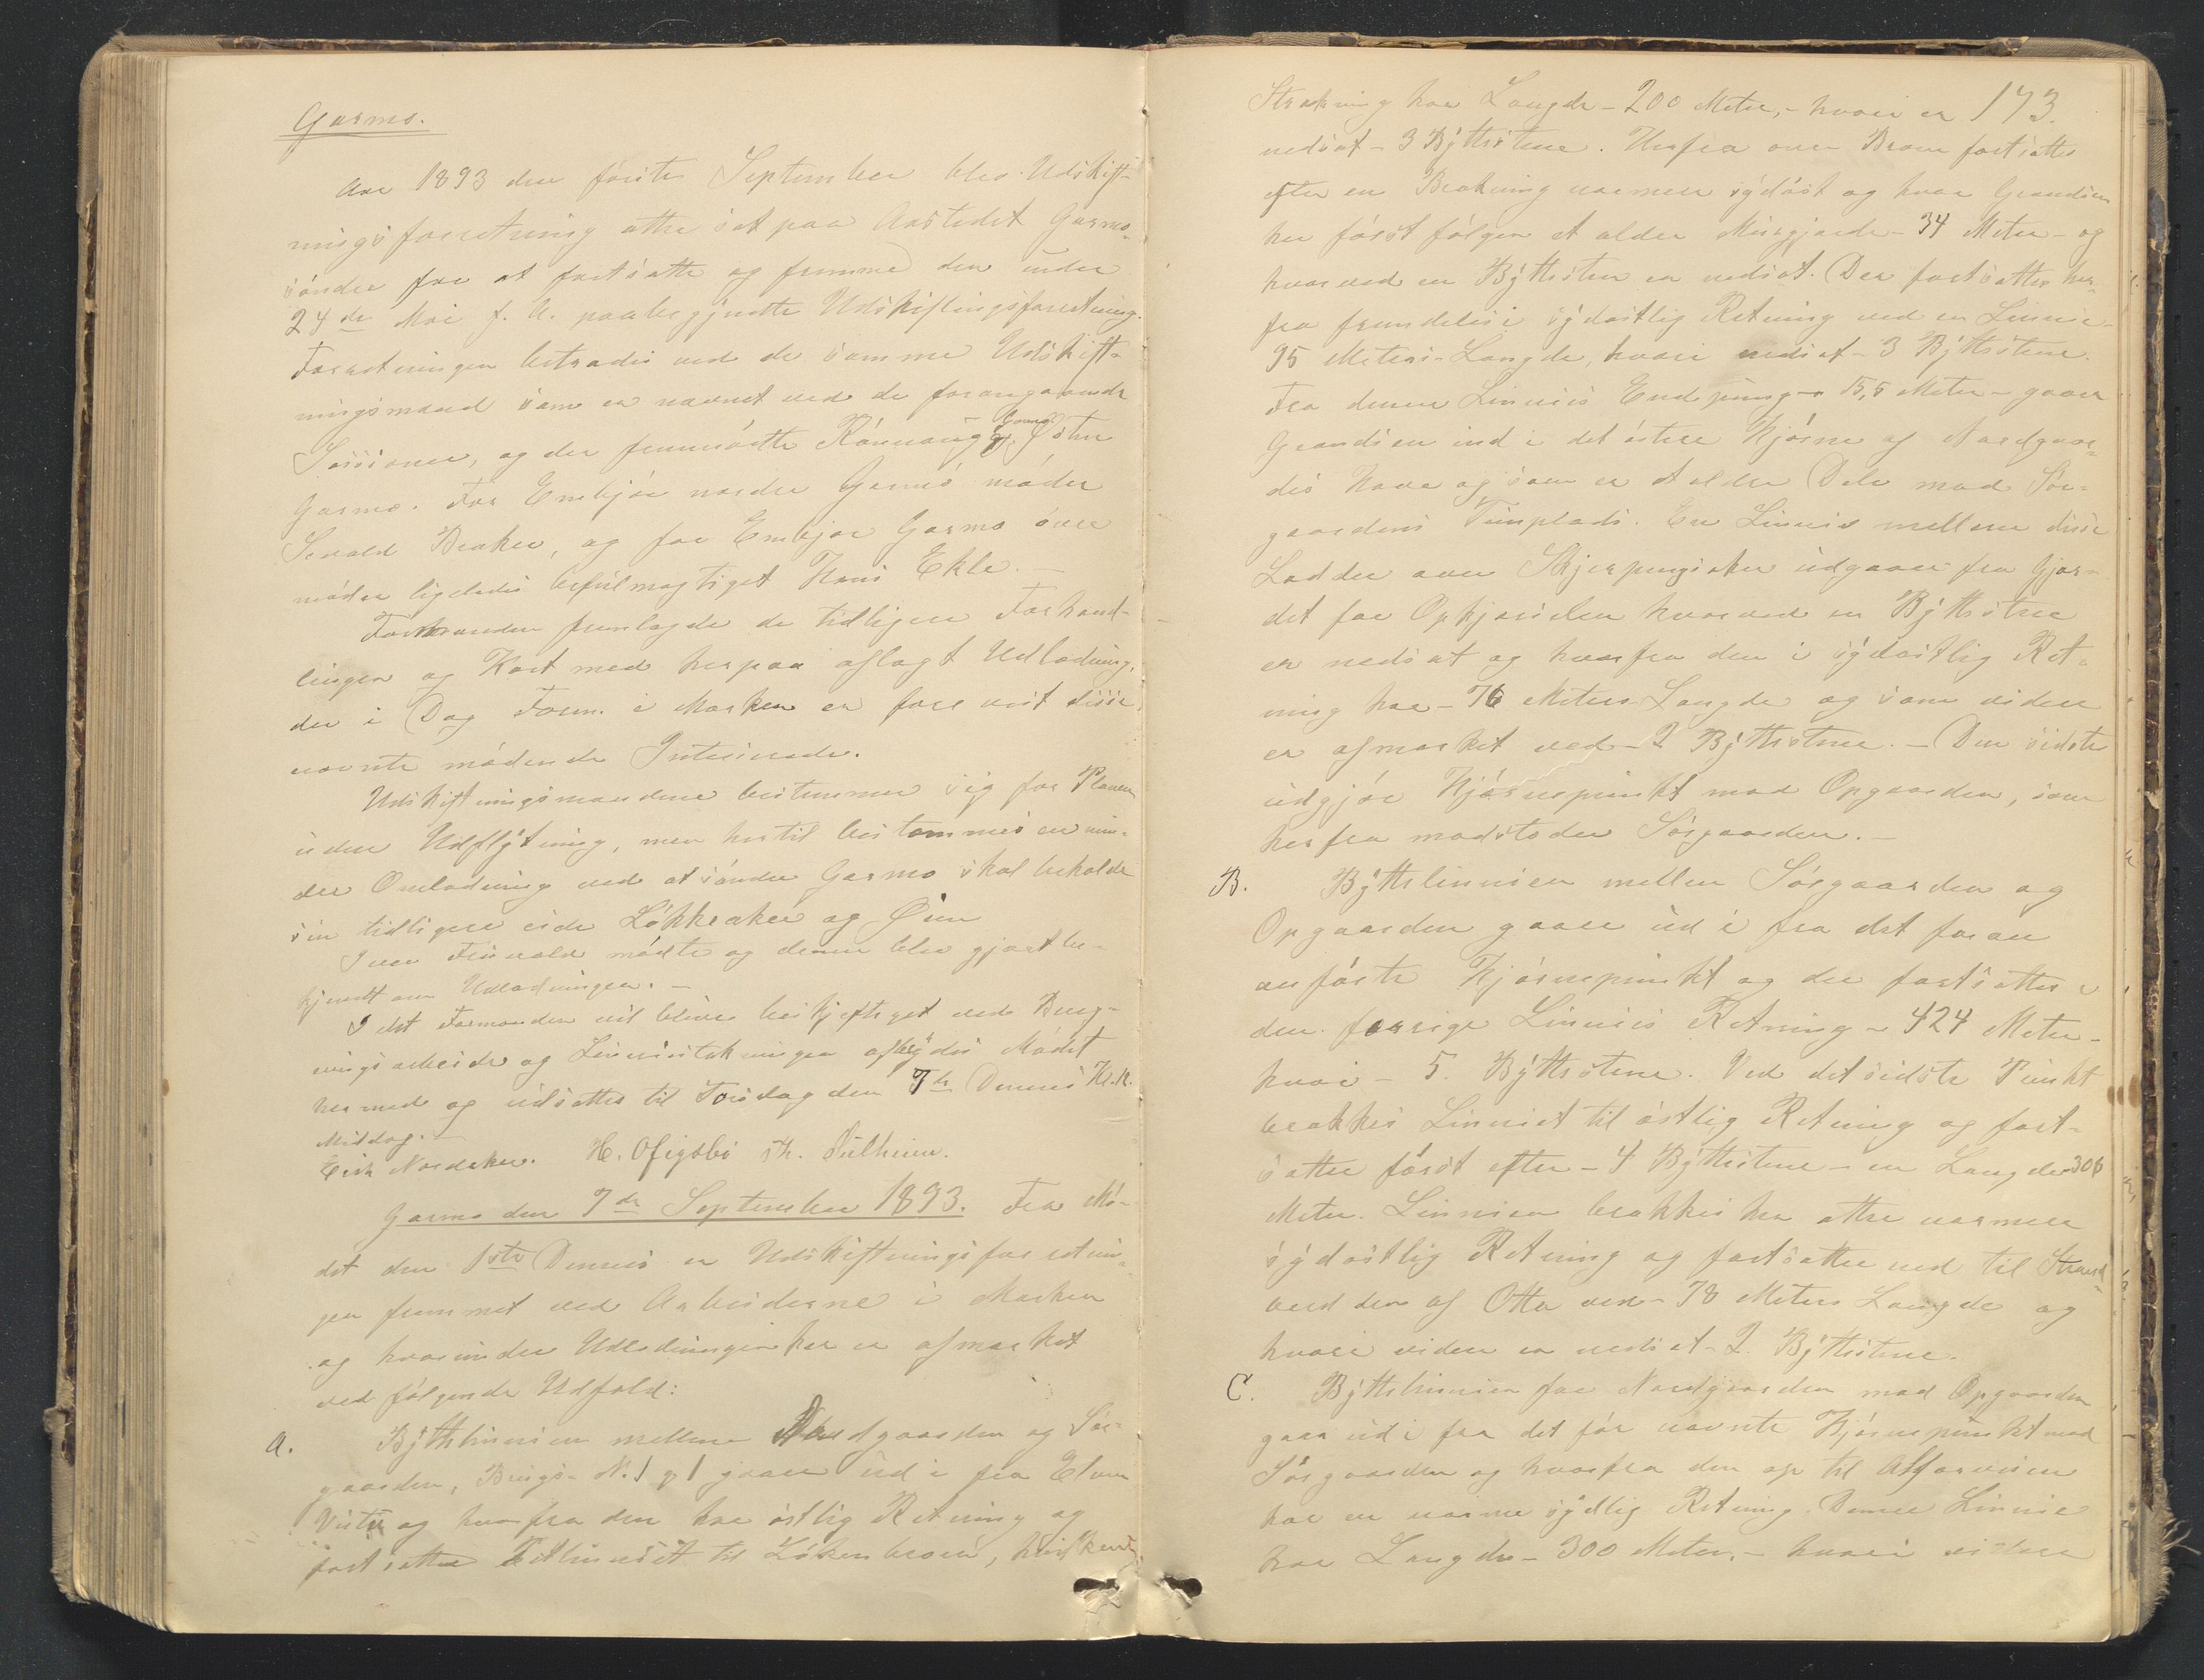 Garmo.
Aar 1893 den förste September blev Udskift-
ningsforretning atter sat paa Aastedet Garmo
söndre for at fortsætte og fremme den under
24de Mai f. A. paabegyndte Udskiftningsforretning.
Forretningen betrædes ved de samme Udskift-
ningsmænd som er nævnt ved de foregaaende
Sessioner, og der fremmödte Rönnaug Garmo Östen
Garmo. For Embjör nordre Garmo möder
Sevald Bræker, og for Embjör Garmo övre
möder ligeledes befuldmægtiget Hans Ekle. —
Formanden fremlagde de tidligere Forhand-
linger og Kart med herpaa aflagt Udlodning,
der i Dag Form. i Marken er fore vist disse
nævnte mödende Interesserede.
Udskiftningsmændene bestemmer sig for Planen
uden Udflÿtning, men hertil bestemmes en min-
dre Omlodning ved at söndre Garmo skal beholde
sin tidligere eide Lökkeaker og Öien
Iver mödte og denne blev gjort be-
kjendt om Udlodningen. —
I det Formanden vil blive beskjæftiget ved Bereg-
ningsarbeide og Liniestikningen afbrÿdes Mödet
hermed og udsættes til Torsdag den 7de Dennes Kl. 12
Middag. —
Erik Nordaker. H. Ofigsbö Th. Sulheim.
Garmo den 7de September 1893. Fra Mö-
det den 1ste Dennes er Udskiftningsforretnin-
gen fremmet ved Arbeiderne i Marken
og hvorunder Udlodningen her er afmærket
ved fölgende Udfald:
A. Bÿttelinnien mellem Nordgaarden og Sör-
gaarden, Brugs-N. 1 og 1 gaaer ud i fra Elven
Vistr og hvorfra den har östlig Retning og
fortsætter Tillinniet til Lökenbroen, hvilken
Strækning har Længde - 200 Meter, - hvori er 173.
nedsat - 3 Bÿttestene. Herfra over Broen fortsættes
efter en Brækning nærmere sÿdöst og hvor Grændsen
her först fölger et ældre Murgjærde - 34 Meter - og
hvorved en Bÿttesten er nedsat. Der fortsættes her-
fra fremdeles i sÿdöstlig Retning ved en Linnie
95 Meters Længde, hvori nedsat - 3 Bÿttestene.
Fra denne Linnies Endepung - 15,5 Meter - gaaer
Grændsen ind i det östre Hjörne af Nordgaar-
des Have og som er et ældre Dele mod Sör-
gaardens Tunplads. En Linnie mellem disse
Lodder over Skjerpingsaker udgaaer fra Gjær-
det for Opkjörselen hvorved en Bÿttestene
er nedsat og hvorfra den i sÿdöstlig Ret-
ning har - 76 Meters Længde og som videre
er afmærket ved - 2 Bÿttestene. - Den sidste
udgjör Hjörnepunkt mod Opgaarden, som
herfra modstöder Sörgaarden. —
B. Bÿttelinnien mellem Sörgaarden og
Opgaarden gaaer ud i fra det foran
anförte Hjörnepunkt og der fortsættes i
den forrige Linnies Retning - 424 Meter -
hvori - 5. Bÿttestene. Ved det sidste Punkt
brækkes Linniet til östlig Retning og fort-
sætter först efter - 4 Bÿttestene - en Længde 306
Meter. Linnien brækkes her atter nærmere
sÿdöstlig Retning og fortsætter ned til Strand-
bredden af Otta ved - 78 Meters Længde og
hvori videre er nedsat - 2 Bÿttestene.
C. Bÿttelinnien for Nordgaarden mod Opgaarden
gaar ud i fra det för nævnte Hjörnepunkt mod
Sörgaarden og hvorfra den op til Alfarveien
har en nærme sÿdlig Retning. Denne Linnie
har Længde - 300 Meter, - hvori videre